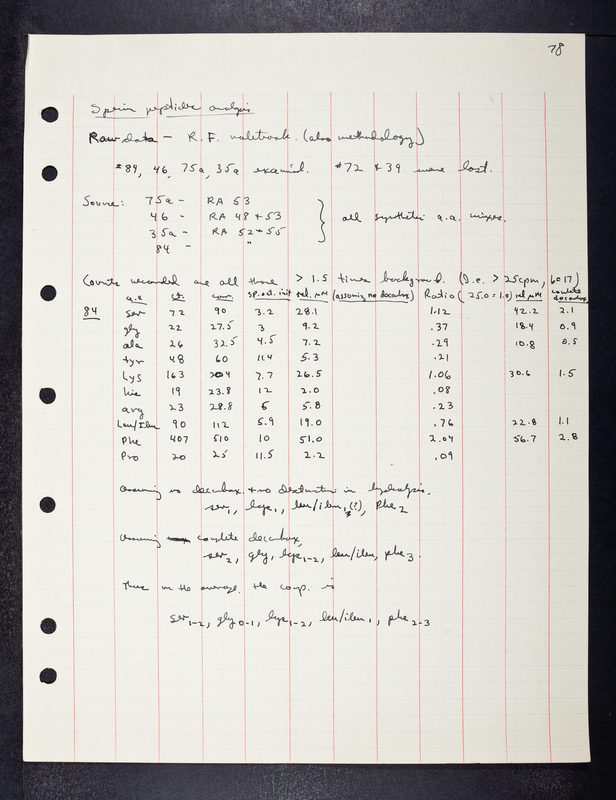 78
Spermine peptides analysis
Raw data - R.F. notebook. (also methodology)
#84, 46, 75a, 35a examined. #72 & 39 were lost.
Source: 75a - RA 53
46 - RA 48 + 53
35a - RA 52 + 55
84 - "
all synthetic a.a. mixes.
Counts recorded are all those > 1.5 times background. (I.e. > 25 cpm, 6017)
a.a ct. corr. sp. act. init rel. µM (assuming no decarbox) Ratio (25.0 = 1.0) rel µM complete decarbox
84 ser 72 90 3.2 28.1 1.12 42.2 2.1
gly 22 27.5 3 9.2 .37 18.4 0.9
ala 26 32.5 4.5 7.2 .29 10.8 0.5
tyr 48 60 11.4 5.3 .21
Lys 163 204 7.7 26.5 1.06 30.6 1.5
his 19 23.8 12 2.0 .08
arg 23 28.8 5 5.8 .23
Leu/Ileu 90 112 5.9 19.0 .76 22.8 1.1
Phe 407 510 10 51.0 2.04 56.7 2.8
Pro 20 25 11.5 2.2 .09
Assuming no decarbox. + no destruction in hydrolysis.
ser1, lys1, leu/ileu1(?), Phe2
Assuming complete decarbox,
ser2, gly, lys1-2, leu/ileu, phe3.
Thus on the average, the comp. is
ser1-2, gly0-1, lys1-2, leu/ileu1, phe2-3